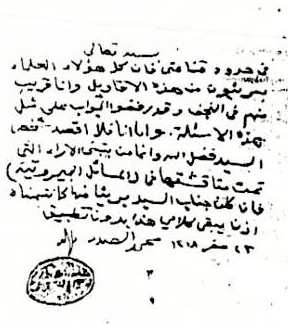 بسمه تعالى
في حدود قناعتي فان كل هؤلاء العلماء
بريئون من هذه الاقاويل وانا قريب
منهم في النجف وقد رفضوا الجواب على مثل
هذه الاسئلة. واما انا فلا اقصد
السيد فضل الله وانما من يتبنى الاراء التي
تمت مناقشتها في (المسائل البيروتية)
فان كان جناب السيد بريئا منها كما نتمناه
اذن يبقى كلامي هذا بدون تطبيق
٢٣ صفر ١٤١٨ محمد الصدر